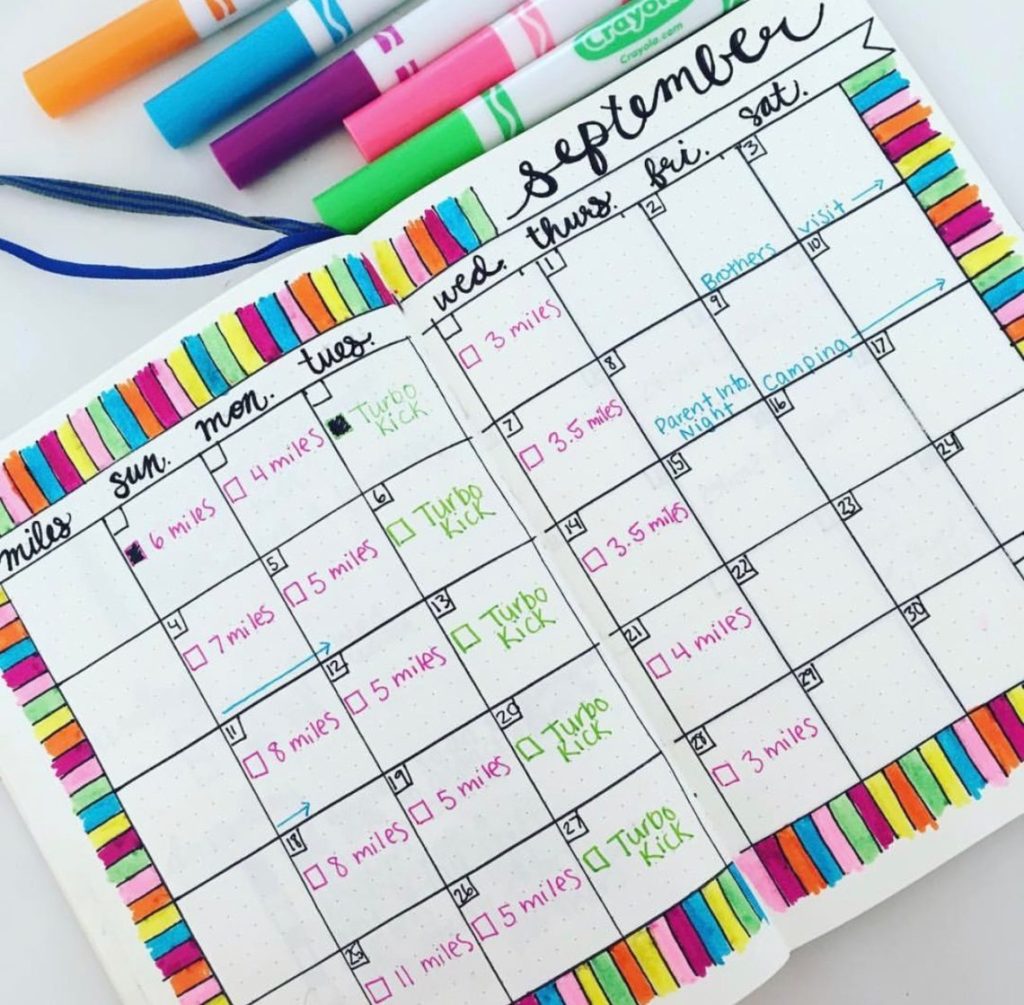 Crayola
Crayola.com
september
miles
sun.
mon.
tues.
wed.
thurs.
fri.
sat.
6 miles
4 miles
Turbo
Kick
3 miles
1
2
Brothers visit
3
4
7 miles
5
5 miles
6
Turbo
Kick
7
3.5 miles
8
Parent Info.
Night
9
Camping
10
11
8 miles
12
5 miles
13
Turbo
Kick
14
3.5 miles
15
16
17
18
8 miles
19
5 miles
20
Turbo
Kick
21
4 miles
22
23
24
25
11 miles
26
5 miles
27
Turbo
Kick
28
3 miles
29
30